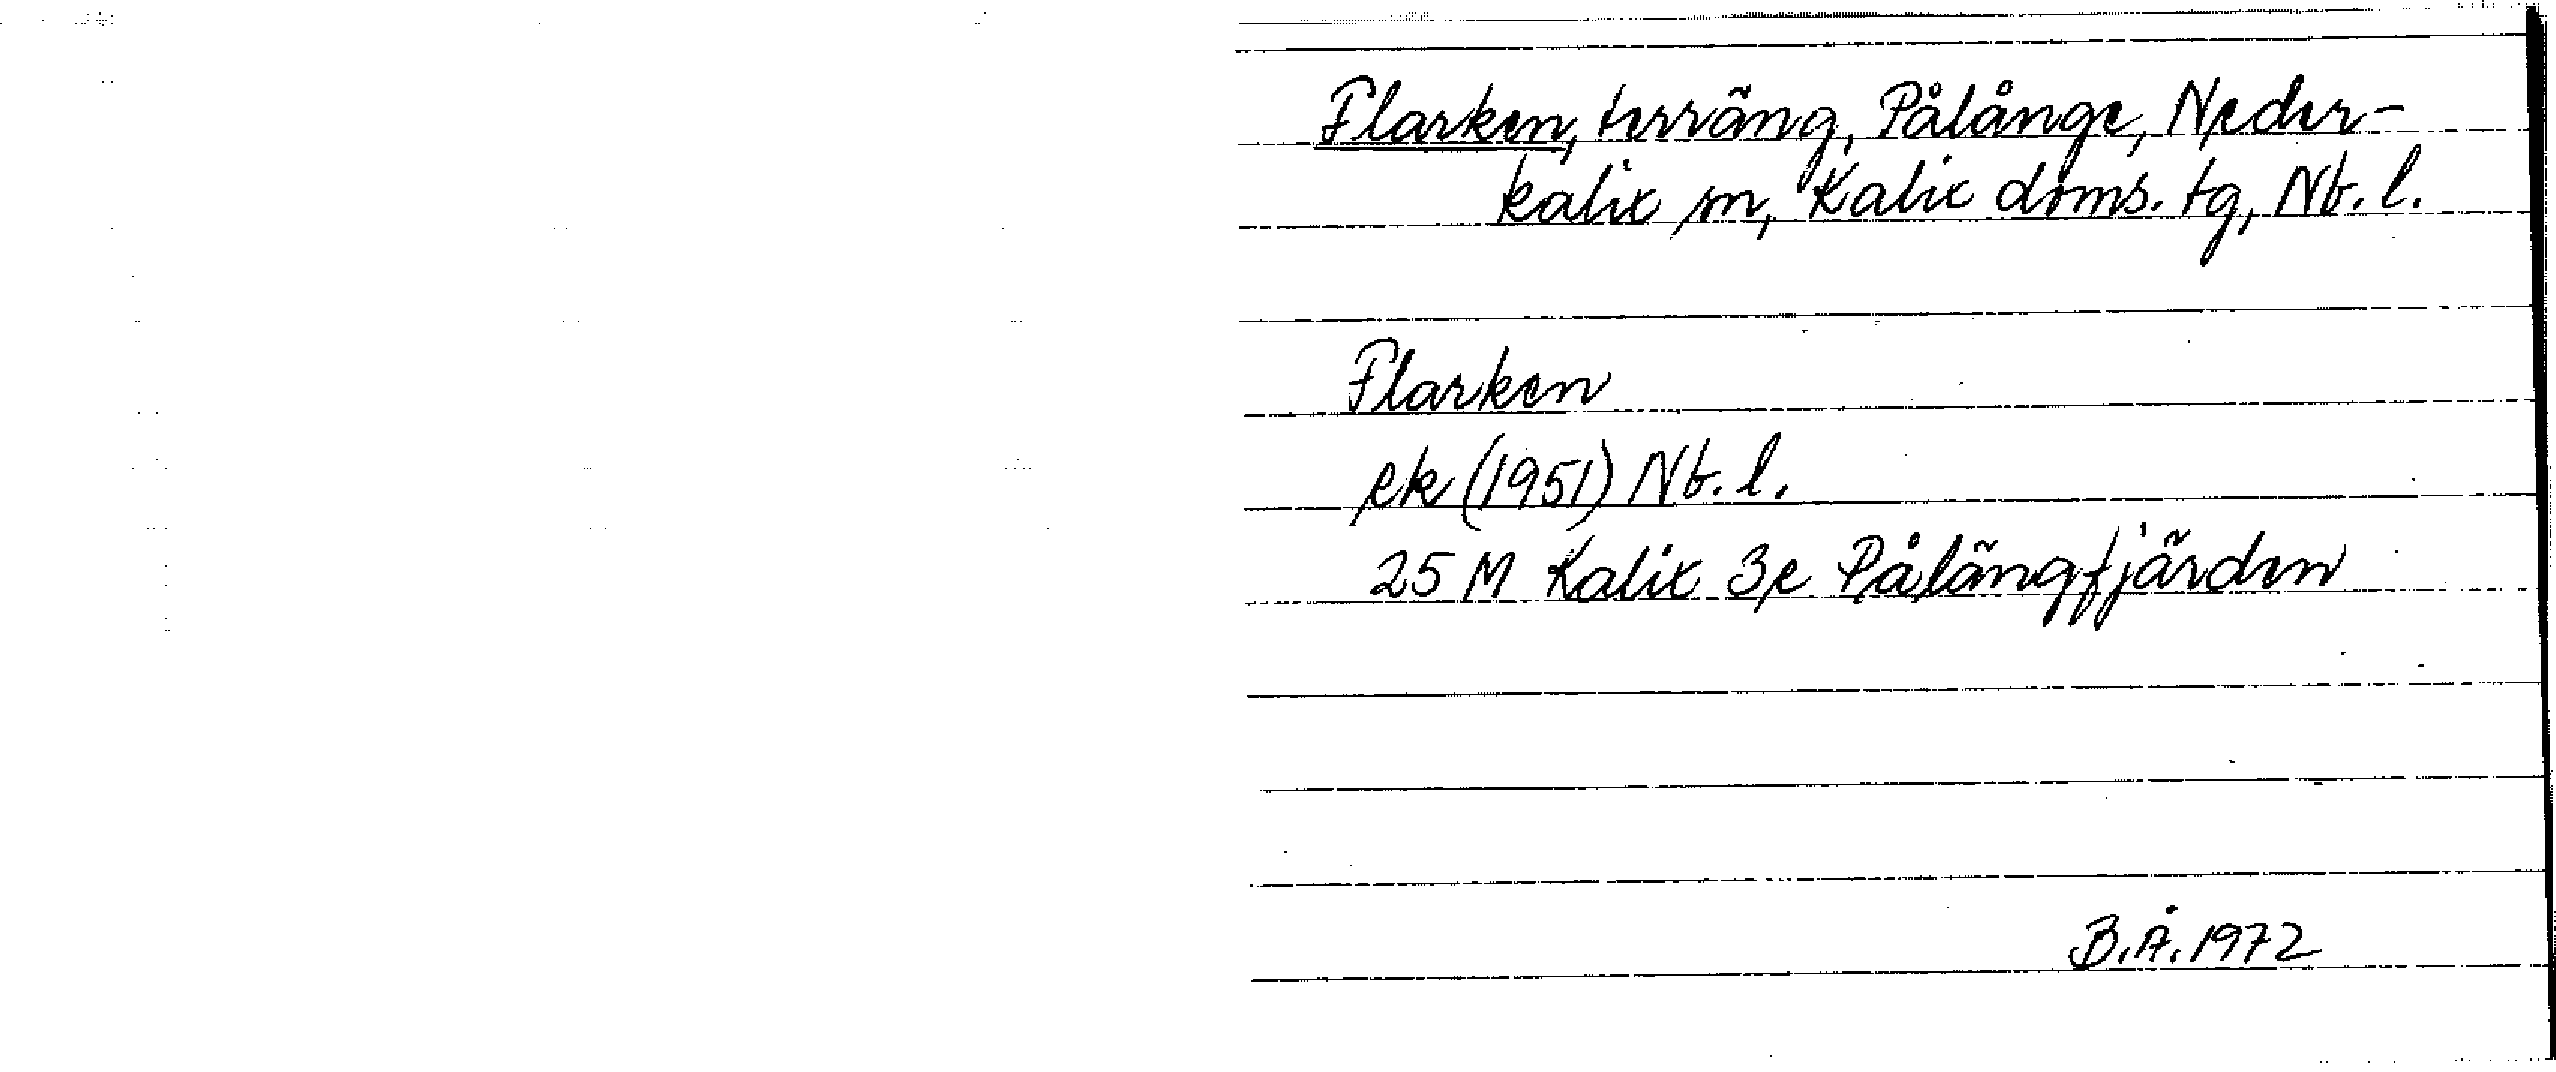 Flarken, terräng, Pålånge, Neder-
kalix sn, Kalix doms. tg, Nb. l.
Flarken
ek (1951) Nb. l.
25 M Kalix 3e Pålängfjärden
B.Å. 1972